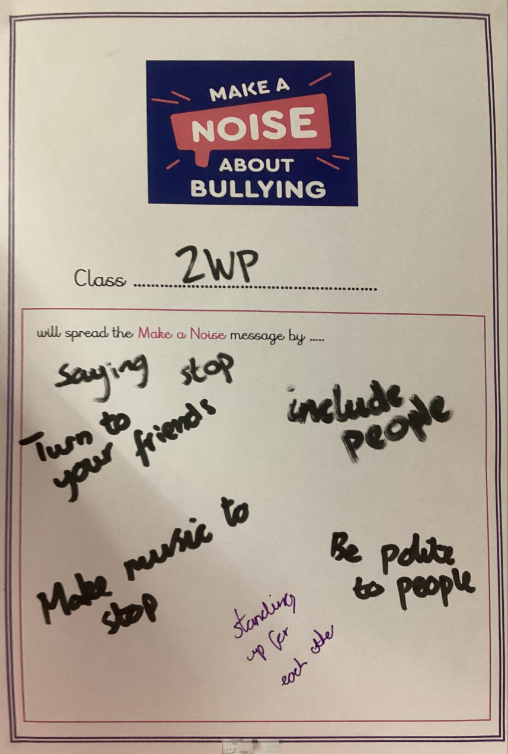 MAKE A
NOISE
ABOUT
BULLYING
Class ........ 2WP ........
will spread the Make a Noise message by .....
saying stop
Turn to
your friends
include
people
Make music to
stop
Be polite
to people
standing
up for
each other